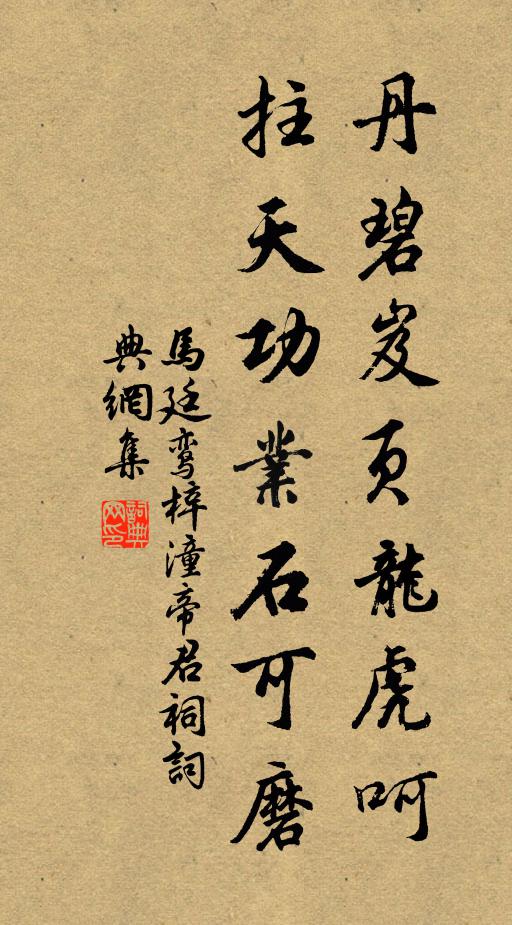 丹碧岌页龍虎呵
拄天功業石可磨
馬廷鸾梓潼帝君祠詞
典網集
詞典
网印